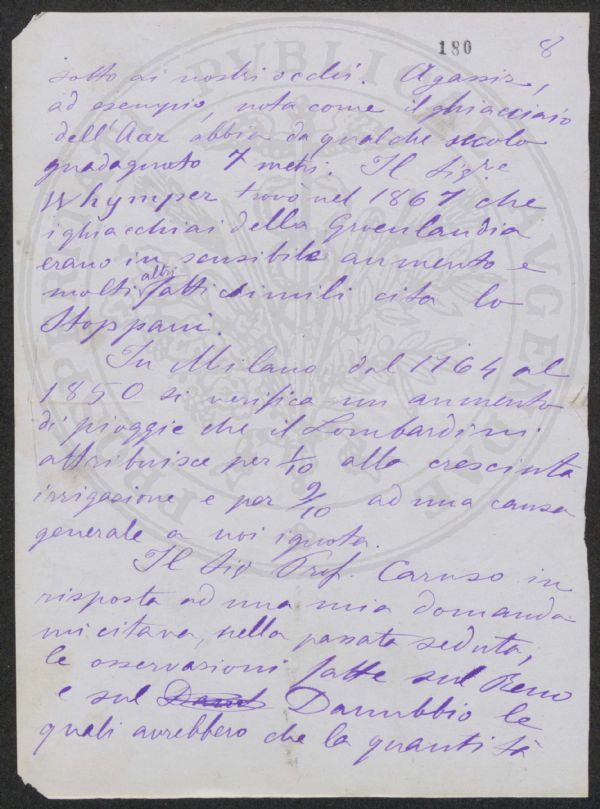 180 8
sotto ai nostri occhi. Agassiz,
ad esempio, nota come il ghiacciaio
dell'Aar abbia da qualche secolo
guadagnato 7 metri. Il Sigre
Whymper trovò nel 1867 che
i ghiacchiai della Groenlandia
erano in sensibile aumento e
molti altri fatti simili cita lo
Stoppani.
In Milano dal 1764 al
1850 si verifica un aumento
di pioggie che il Lombardini
attribuisce per 1/10 alla cresciuta
irrigazione e per 9/10 ad una causa
generale a noi ignota.
Il Sig Prof. Caruso in
risposta ad una mia domanda
mi citava, nella passata seduta,
le osservazioni fatte sul Reno
e sul Danubbio le
quali avrebbero che la quantità
PUBLICAE
AUGENDAE